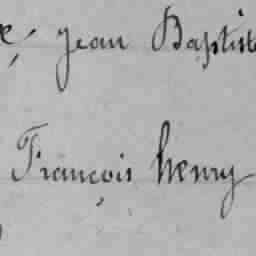 Jean Baptiste
François henry